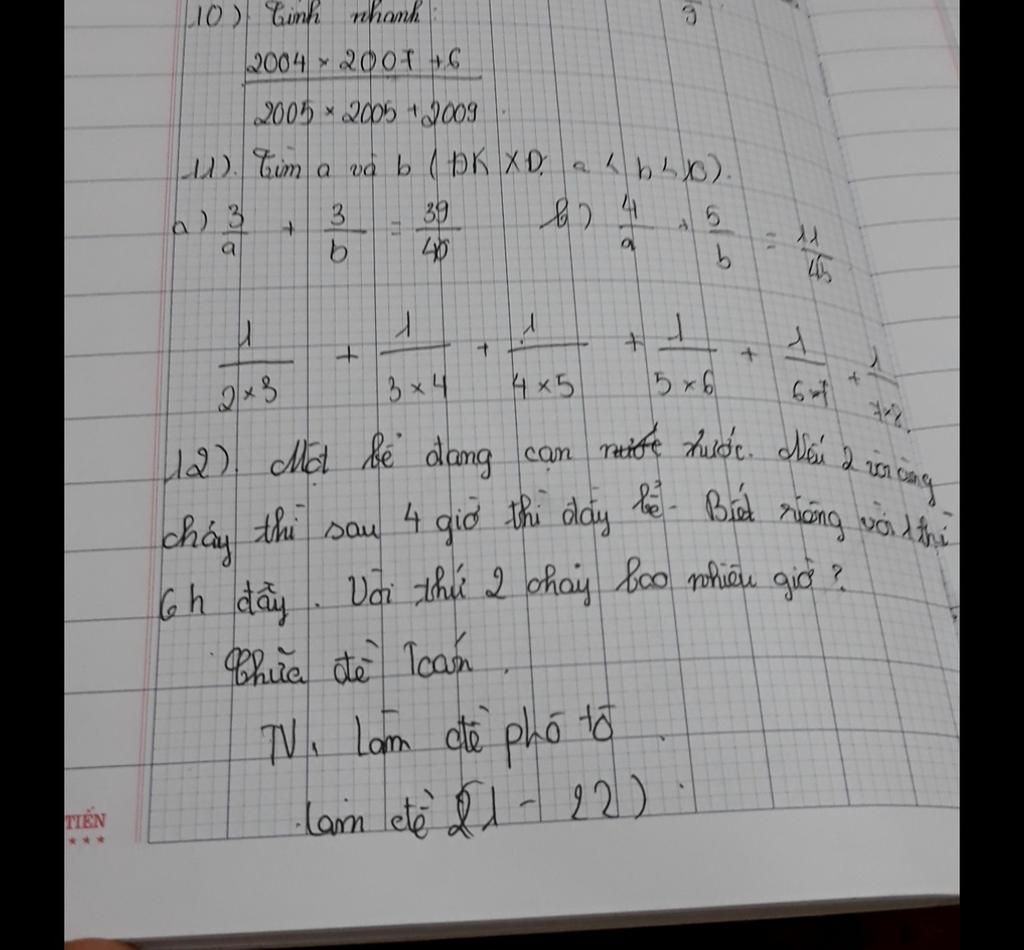 10) Tính nhanh:
9
2004 × 2007 + 6
2005 × 2005 + 2009
11). Tìm a và b (ĐK XĐ: a < b < 10).
a) 3/a + 3/b = 39/40 b) 4/a + 5/b = 11/45
1/2×3 + 1/3×4 + 1/4×5 + 1/5×6 + 1/6×7 + 1/7×8.
12) Một bể đang cạn nước. Nếu 2 vòi cùng
chảy thì sau 4 giờ thì đầy bể. Biết riêng vòi 1 thì
6h đầy. Vòi thứ 2 chảy bao nhiêu giờ?
Chữa đề Toán.
TV. Làm đề phô tô.
làm đề (21 - 22).
TIẾN